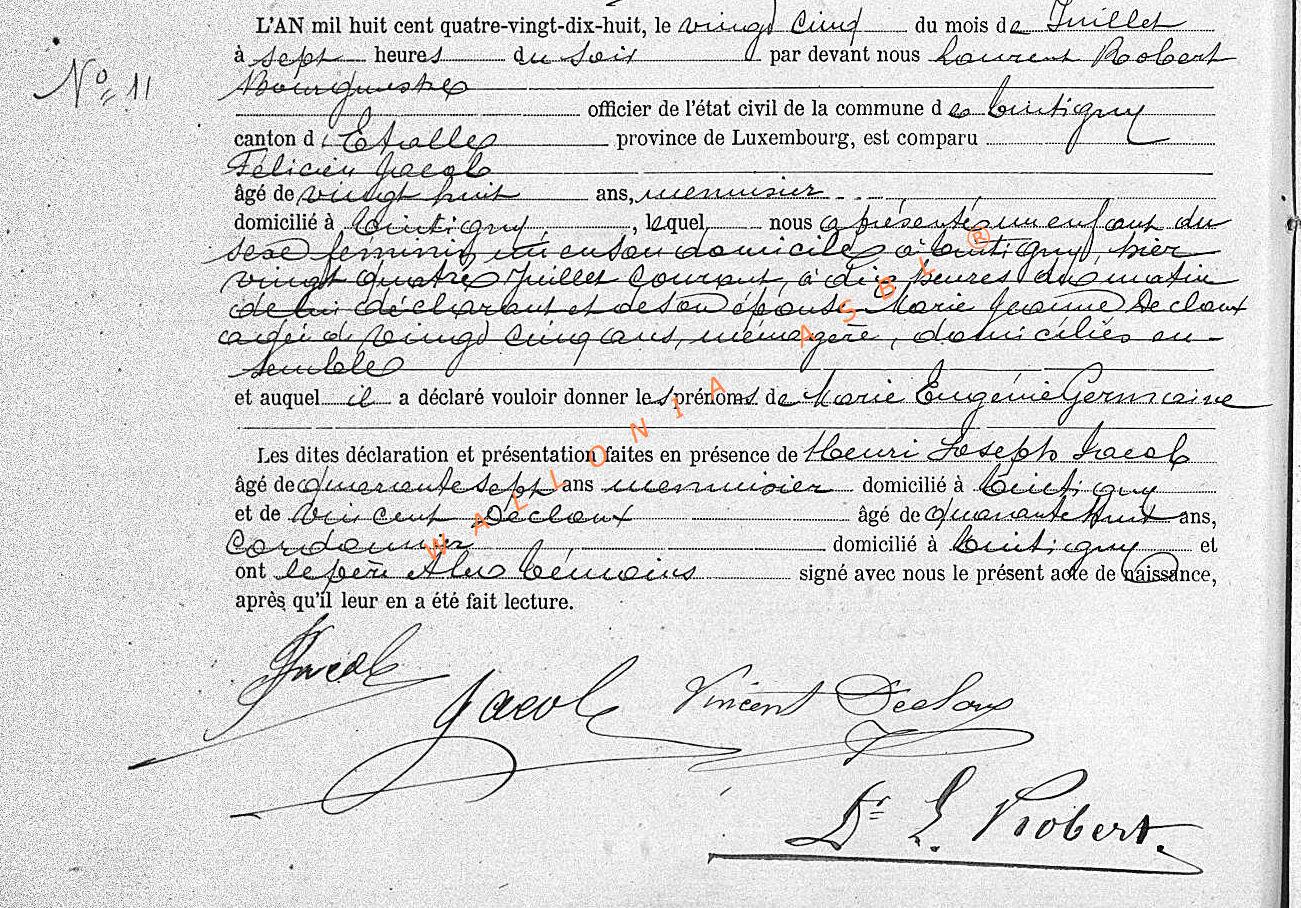 L'AN mil huit cent quatre-vingt-dix-huit, le vingt cinq du mois de Juillet
N° 11
à sept heures du soir par devant nous Laurent Robert
Bourgmestre
officier de l'état civil de la commune de Tintigny
canton d'Etalle province de Luxembourg, est comparu
Félicien Jacob
âgé de vingt huit ans, menuisier
domicilié à Tintigny, lequel nous a présenté un enfant du
sexe féminin, né en son domicile à Tintigny, hier
vingt quatre Juillet courant, à dix heures du matin
de lui déclarant et de son épouse Marie Jeanne Decloux
agée de vingt cinq ans, ménagère, domiciliés en-
semble
et auquel il a déclaré vouloir donner les prénoms de Marie Eugénie Germaine
Les dites déclaration et présentation faites en présence de Henri Joseph Jacob
âgé de quarante sept ans menuisier domicilié à Tintigny
et de Vincent Decloux âgé de quarante huit ans,
cordonnier domicilié à Tintigny et
ont le père et les témoins signé avec nous le présent acte de naissance,
après qu'il leur en a été fait lecture.
Jacob
Jacob Vincent Decloux
Dr L. Robert.
WALLONIA ASBL ®